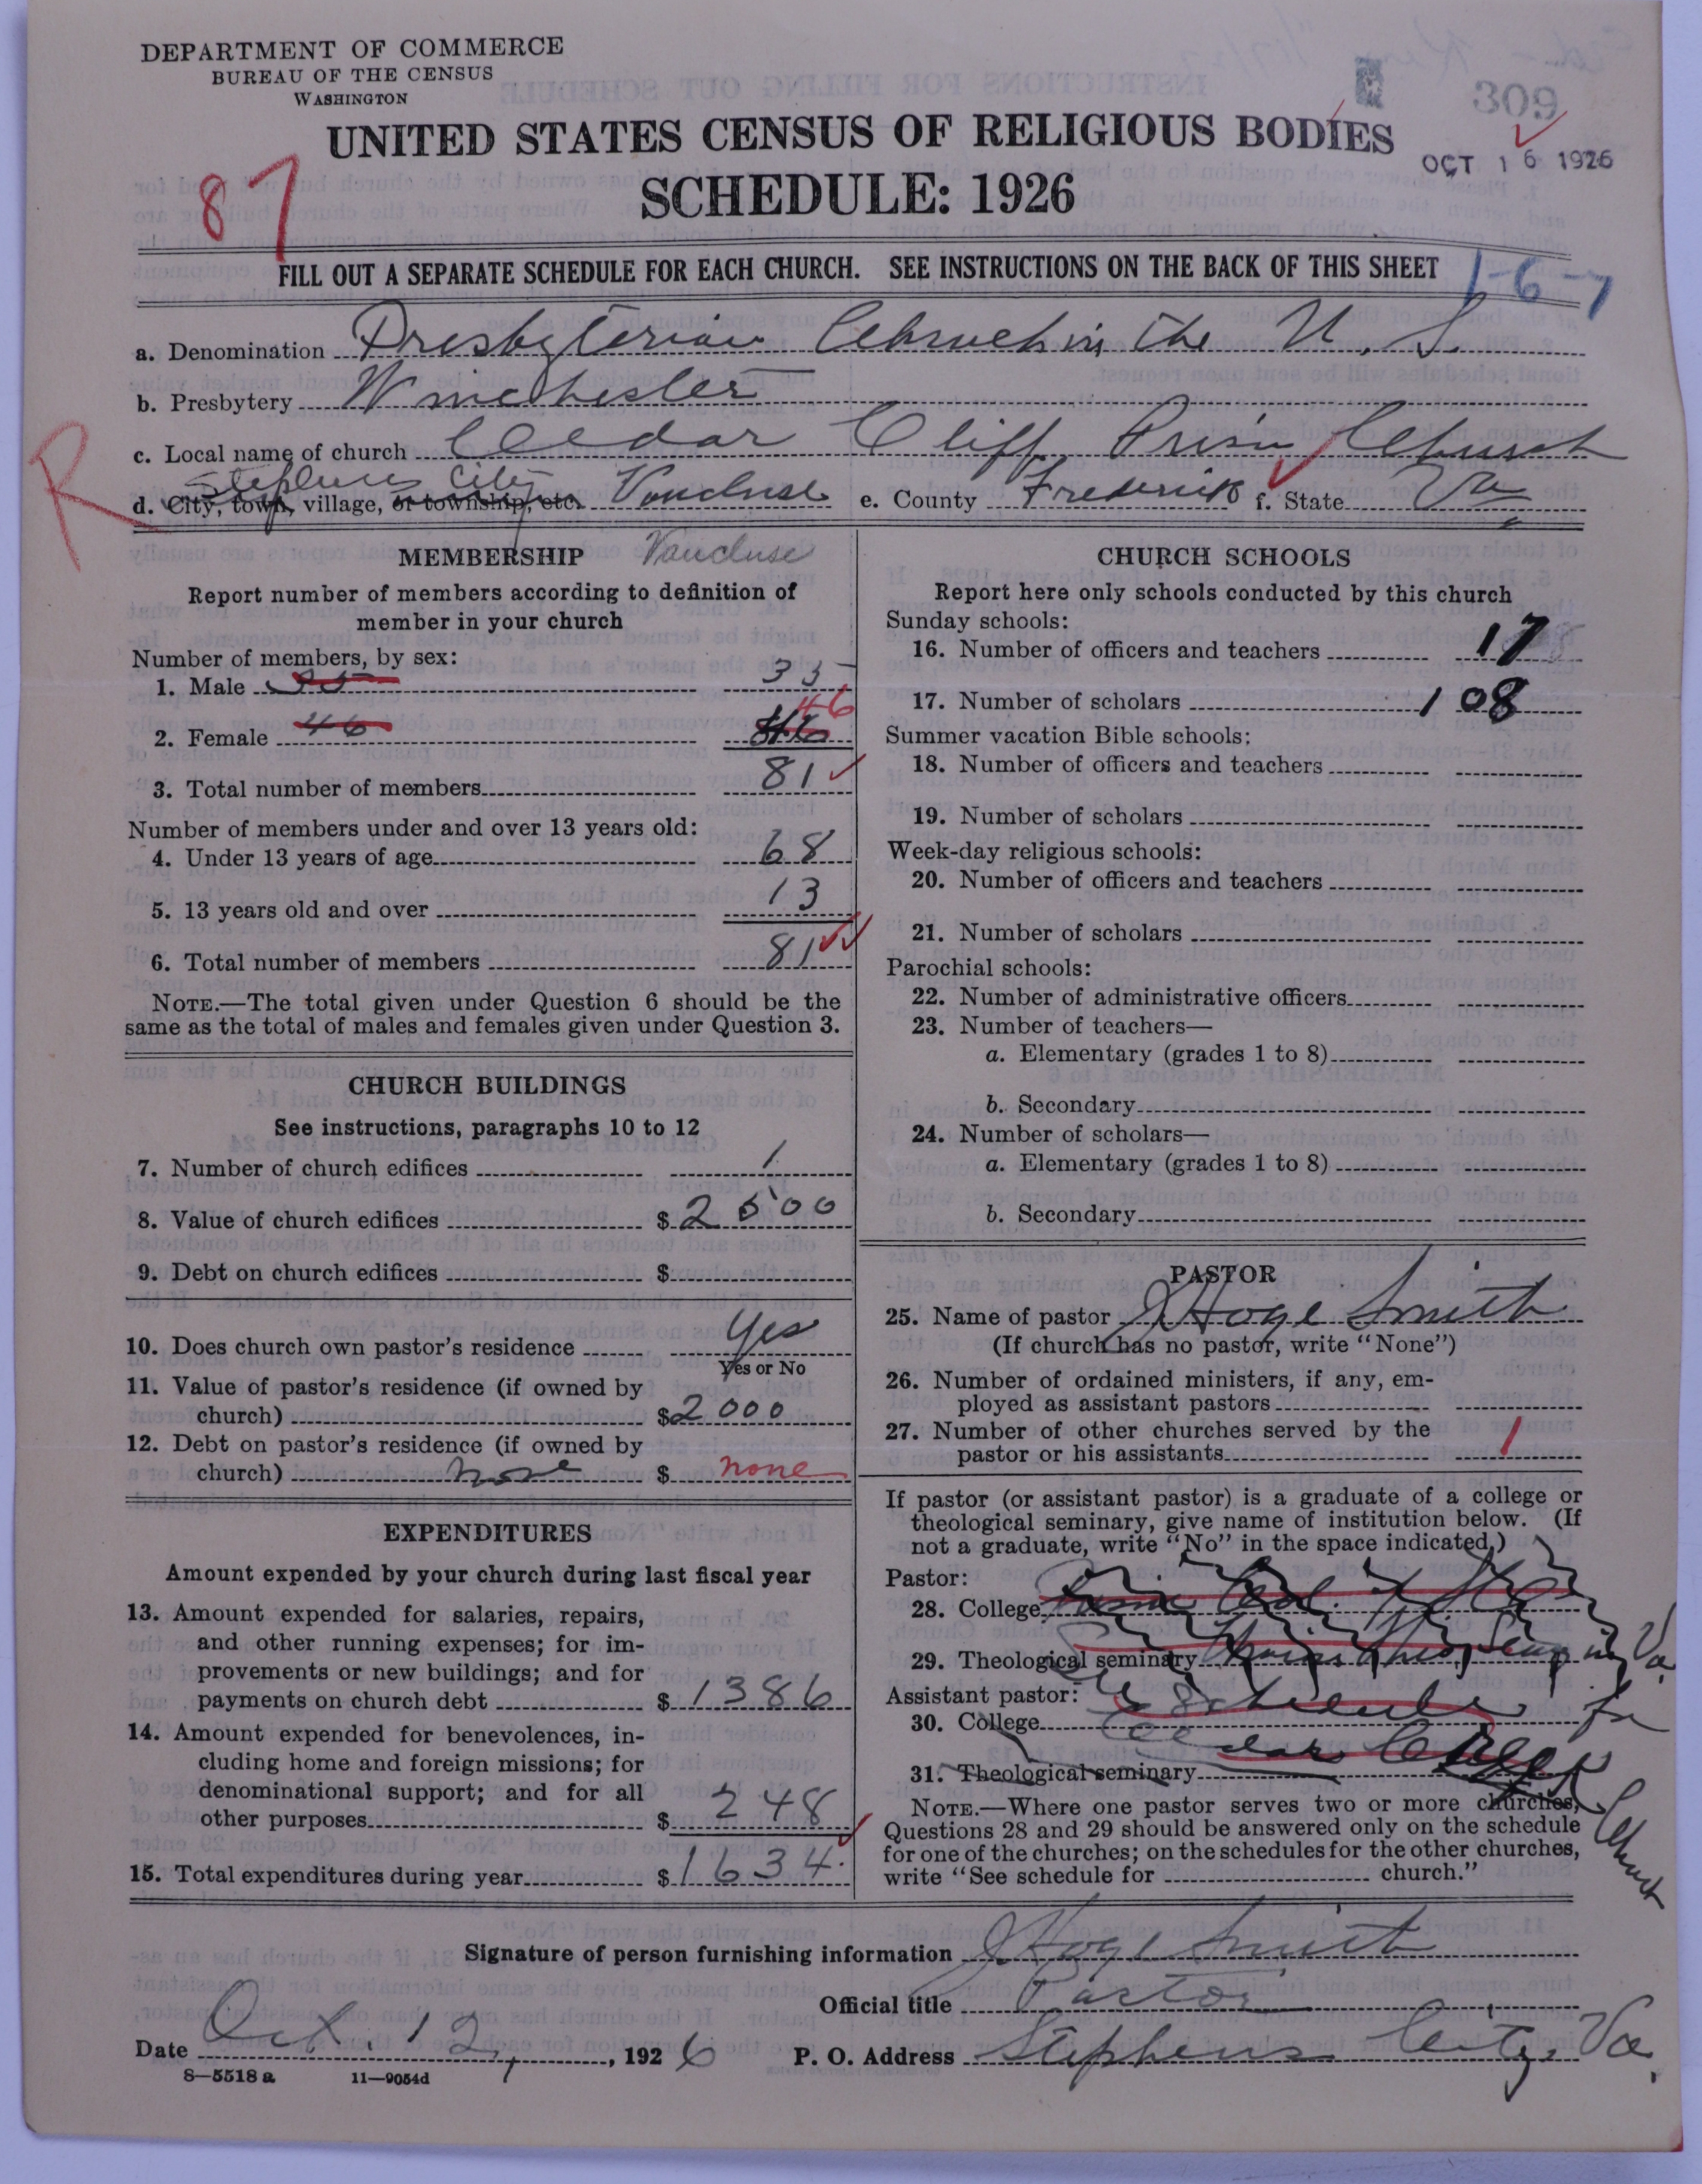 DEPARTMENT OF COMMERCE
BUREAU OF THE CENSUS
WASHINGTON
309
UNITED STATES CENSUS OF RELIGIOUS BODIES
OCT 16 1926
SCHEDULE: 1926
87
FILL OUT A SEPARATE SCHEDULE FOR EACH CHURCH. SEE INSTRUCTIONS ON THE BACK OF THIS SHEET
1-6-7
a. Denomination Presbyterian Church in the U. S.
b. Presbytery Winchester
c. Local name of church Cedar Cliff Church
R
Stephens City
d. City, town, village, or township, etc. Vaucluse e. County Frederick f. State Va
MEMBERSHIP Vaucluse
Report number of members according to definition of
member in your church
Number of members, by sex:
1. Male 35 35
2. Female 46 46 46
3. Total number of members 81
Number of members under and over 13 years old:
4. Under 13 years of age 68
5. 13 years old and over 13
6. Total number of members 81
NOTE.—The total given under Question 6 should be the
same as the total of males and females given under Question 3.
CHURCH BUILDINGS
See instructions, paragraphs 10 to 12
7. Number of church edifices 1
8. Value of church edifices $ 2500
9. Debt on church edifices $
10. Does church own pastor's residence Yes
Yes or No
11. Value of pastor's residence (if owned by
church) $ 2000
12. Debt on pastor's residence (if owned by
church) none $ none
EXPENDITURES
Amount expended by your church during last fiscal year
13. Amount expended for salaries, repairs,
and other running expenses; for im-
provements or new buildings; and for
payments on church debt $ 1386
14. Amount expended for benevolences, in-
cluding home and foreign missions; for
denominational support; and for all
other purposes $ 248
15. Total expenditures during year $ 1634
CHURCH SCHOOLS
Report here only schools conducted by this church
Sunday schools:
16. Number of officers and teachers 17
17. Number of scholars 108
Summer vacation Bible schools:
18. Number of officers and teachers
19. Number of scholars
Week-day religious schools:
20. Number of officers and teachers
21. Number of scholars
Parochial schools:
22. Number of administrative officers
23. Number of teachers—
a. Elementary (grades 1 to 8)
b. Secondary
24. Number of scholars—
a. Elementary (grades 1 to 8)
b. Secondary
PASTOR
25. Name of pastor J Hoge Smith
(If church has no pastor, write "None")
26. Number of ordained ministers, if any, em-
ployed as assistant pastors
27. Number of other churches served by the
pastor or his assistants 1
If pastor (or assistant pastor) is a graduate of a college or
theological seminary, give name of institution below. (If
not a graduate, write "No" in the space indicated.)
Pastor:
28. College
29. Theological seminary Sem in Va
Assistant pastor: Schedule for
30. College Cedar Cliff
31. Theological seminary Church
NOTE.—Where one pastor serves two or more churches,
Questions 28 and 29 should be answered only on the schedule
for one of the churches; on the schedules for the other churches,
write "See schedule for church."
Signature of person furnishing information J Hoge Smith
Official title Pastor
Date Oct. 12, 1926 P. O. Address Stephens City, Va.
8—5518 a 11—9054d